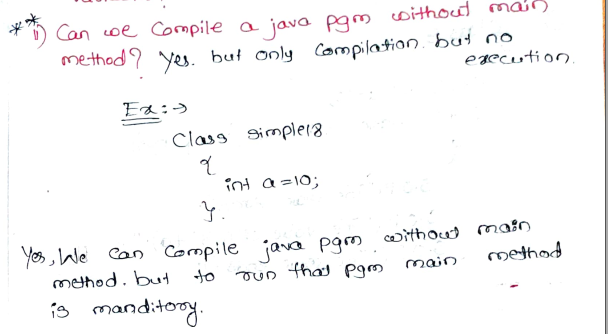 ** 1) Can we Compile a java pgm without main
method? Yes. but only Compilation. but no
execution.
Ex:→
Class simple18
{
int a=10;
}.
Yes, We Can Compile java pgm without main
method. but to run that pgm main method
is manditory.